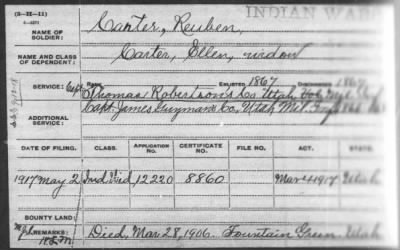 (3-H-11)
INDIAN WARS
NAME OF SOLDIER: Carter, Reuben,
NAME AND CLASS OF DEPENDENT: Carter, Ellen, widow
SERVICE: Capt. RANK ENLISTED, 1867 DISCHARGED
Thomas Robertson's Co Utah, Vol.
ADDITIONAL SERVICE: Capt. James Guyman's Co, Utah Mil.
DATE OF FILING. CLASS. APPLICATION NO. CERTIFICATE NO. FILE NO. ACT. STATE.
1917 May 2 Ind Wid 12220 8860 Mar 4 1917 Utah
BOUNTY LAND:
REMARKS: Died, Mar 28, 1906. Fountain Green, Utah